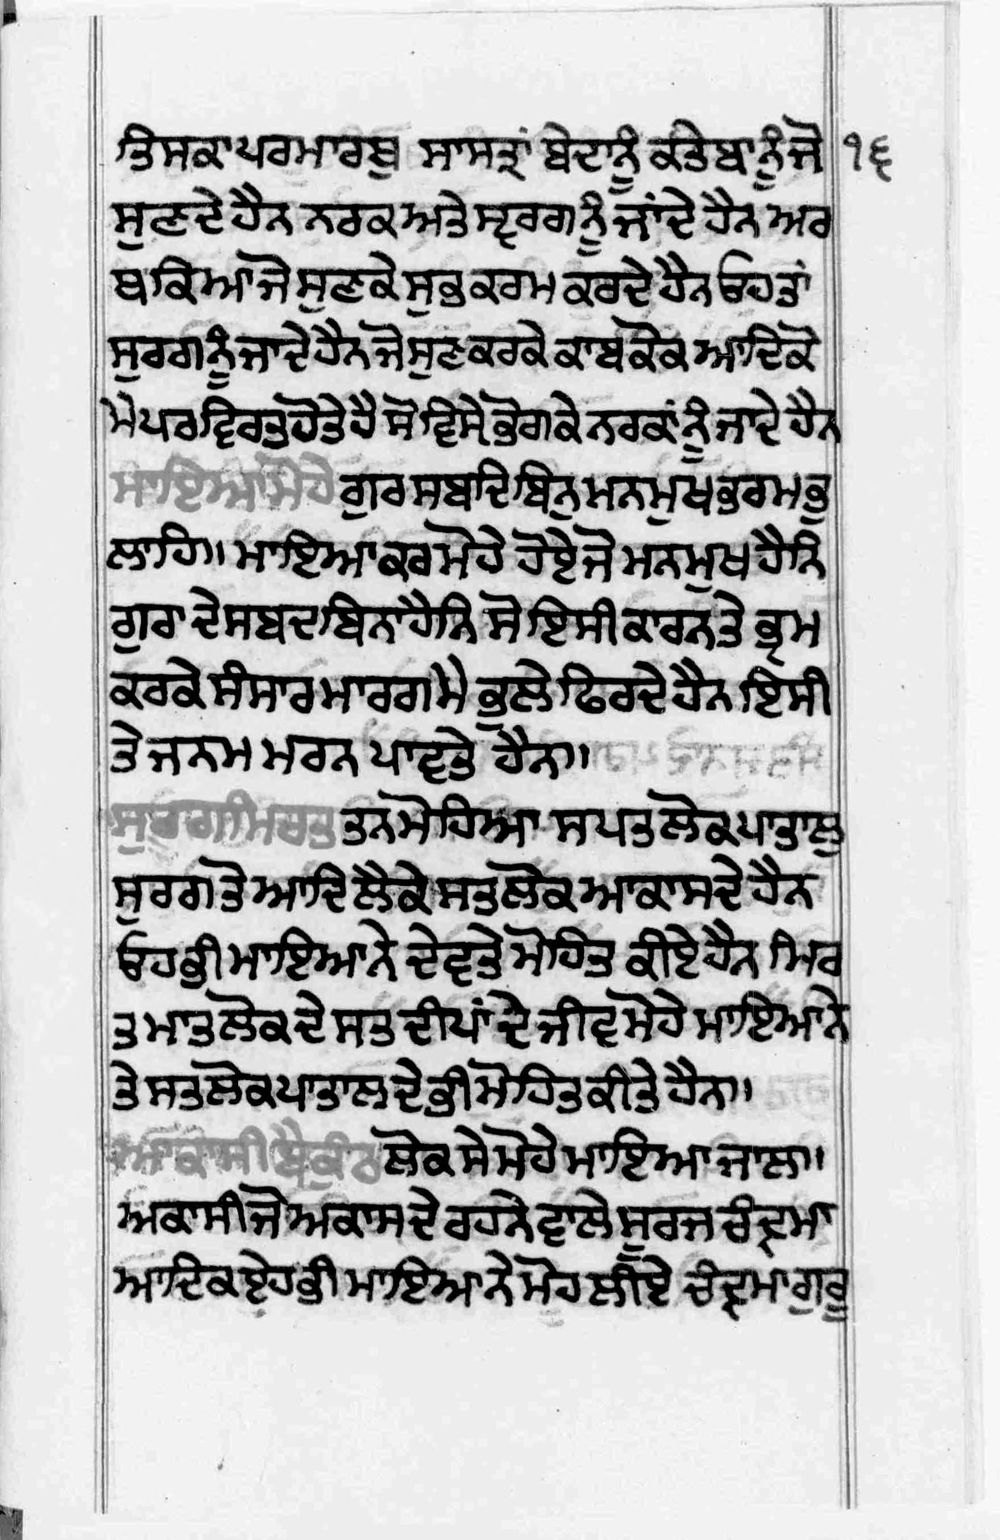 ਤਿਸਕਾ ਪਰਮਾਰਥੁ ਸਾਸਤ੍ਰਾਂ ਬੇਦਾਨੂੰ ਕਤੇਬਾਨੂੰ ਜੋ ੧੬
ਸੁਣਦੇ ਹੈਨ ਨਰਕ ਅਤੇ ਸ੍ਵਰਗ ਨੂੰ ਜਾਂਦੇ ਹੈਨ ਅਰ
ਬਕਿਆ ਜੋ ਸੁਣਕੇ ਸੁਭ ਕਰਮ ਕਰਦੇ ਹੈਨ ਓਹ ਤਾਂ
ਸੁਰਗ ਨੂੰ ਜਾਦੇ ਹੈਨ ਜੋ ਸੁਣ ਕਰਕੇ ਕਾਬ ਕੋਕ ਆਦਿਕੋ
ਮੇ ਪਰਵਿਰਤੁ ਹੋਤੇ ਹੈ ਸੋ ਵਿਸੇ ਭੋਗਕੇ ਨਰਕਾਂ ਨੂੰ ਜਾਦੇ ਹੈਨ
ਮਾਇਆ ਮੋਹੇ ਗੁਰ ਸਬਦਿ ਬਿਨੁ ਮਨਮੁਖ ਭਰਮ ਭੁ
ਲਾਹਿ॥ ਮਾਇਆ ਕਰ ਮੋਹੇ ਹੋਏ ਜੋ ਮਨਮੁਖ ਹੈਨਿ
ਗੁਰਾ ਦੇ ਸਬਦ ਬਿਨਾ ਹੈਨਿ ਸੋ ਇਸੀ ਕਾਰਨ ਤੇ ਭ੍ਰਮ
ਕਰਕੇ ਸੰਸਾਰ ਮਾਰਗ ਮੈ ਭੁਲੇ ਫਿਰਦੇ ਹੈਨ ਇਸੀ
ਤੇ ਜਨਮ ਮਰਨ ਪਾਵਤੇ ਹੈਨ॥
ਸੁਰਗ ਮਿਰਤ ਤਨ ਮੋਹਿਆ ਸਪਤ ਲੋਕ ਪਾਤਾਲੁ
ਸੁਰਗ ਤੋ ਆਦਿ ਲੈਕੇ ਸਤ ਲੋਕ ਆਕਾਸ ਦੇ ਹੈਨ
ਓਹ ਭੀ ਮਾਇਆ ਨੇ ਦੇਵਤੇ ਮੋਹਿਤ ਕੀਏ ਹੈਨ ਮਿਰ
ਤ ਮਾਤ ਲੋਕ ਦੇ ਸਤ ਦੀਪਾਂ ਦੇ ਜੀਵ ਮੋਹੇ ਮਾਇਆ ਨੇ
ਤੇ ਸਤ ਲੋਕ ਪਾਤਾਲ ਦੇ ਭੀ ਮੋਹਿਤ ਕੀਤੇ ਹੈਨ॥
ਆਕਾਸੀ ਬੈਕੁੰਠ ਲੋਕ ਸੇ ਮੋਹੇ ਮਾਇਆ ਜਾਲਾ॥
ਅਕਾਸੀ ਜੋ ਅਕਾਸ ਦੇ ਰਹਨੇ ਵਾਲੇ ਸੂਰਜ ਚੰਦ੍ਰਮਾ
ਆਦਿਕ ਏਹ ਭੀ ਮਾਇਆ ਨੇ ਮੋਹ ਲੀਏ ਚੰਦ੍ਰਮਾ ਗੁਰੂ